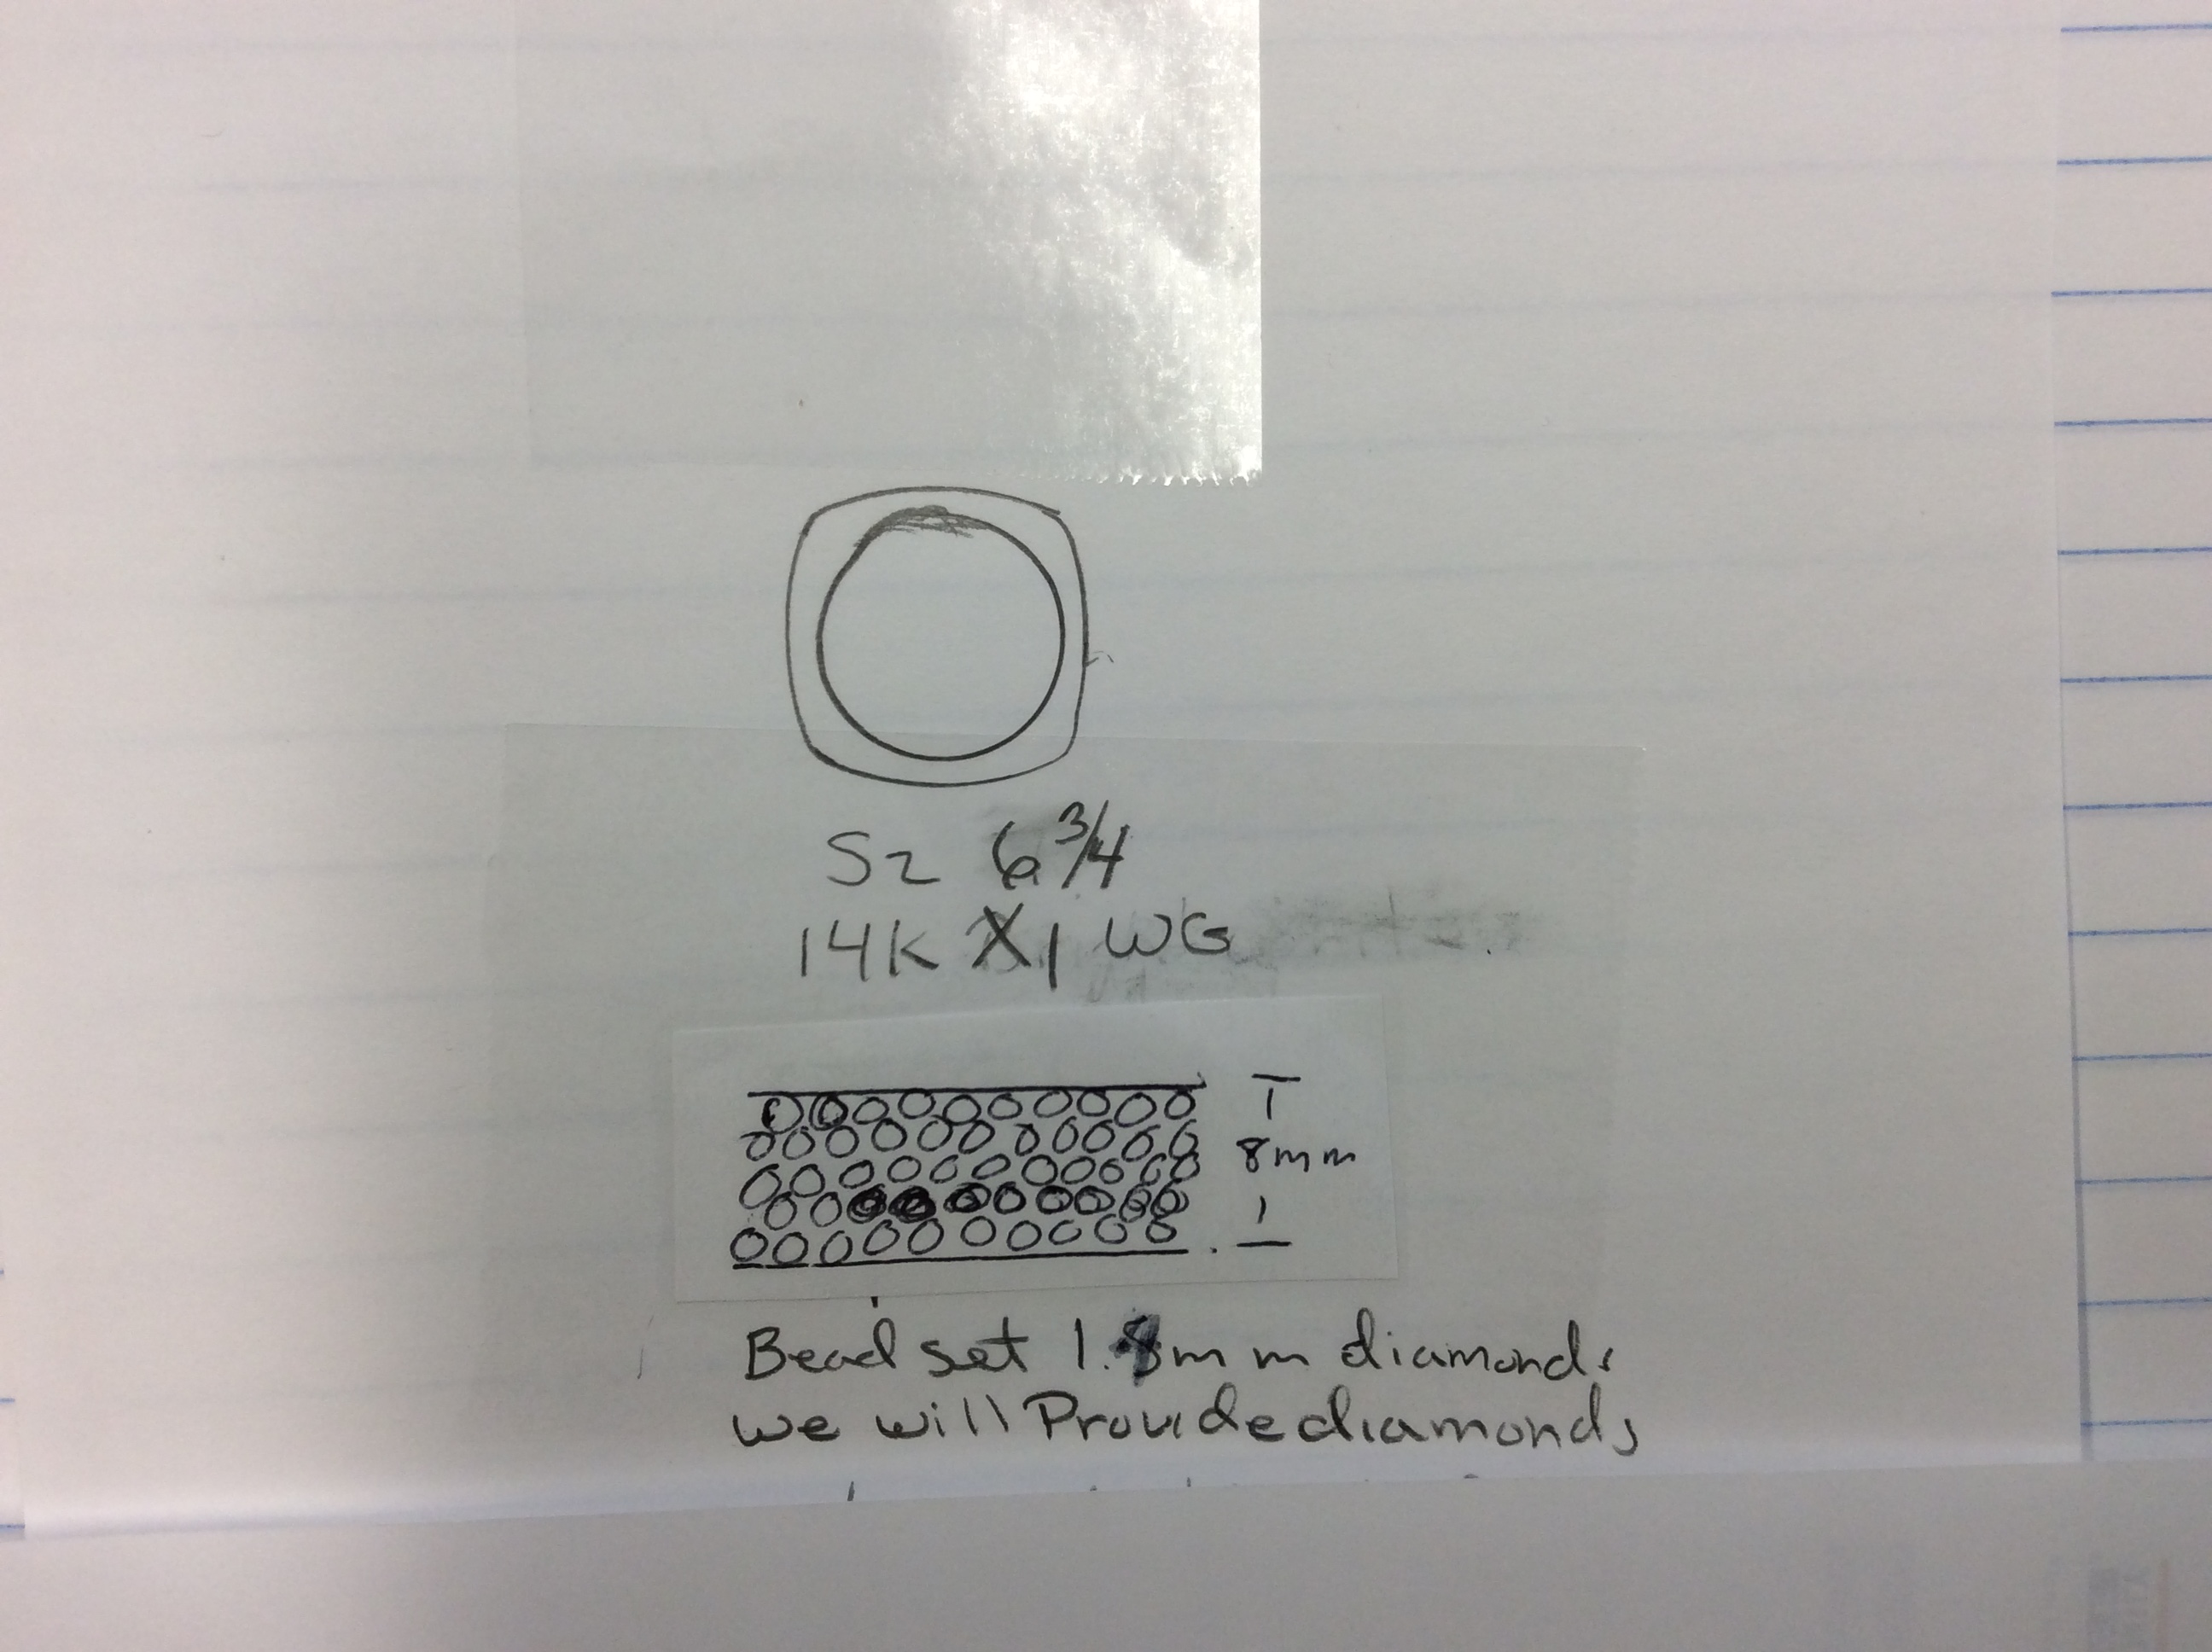 Sz 6 3/4
14K X1 WG
8mm
Bead set 1.8mm diamonds
we will Provide diamonds